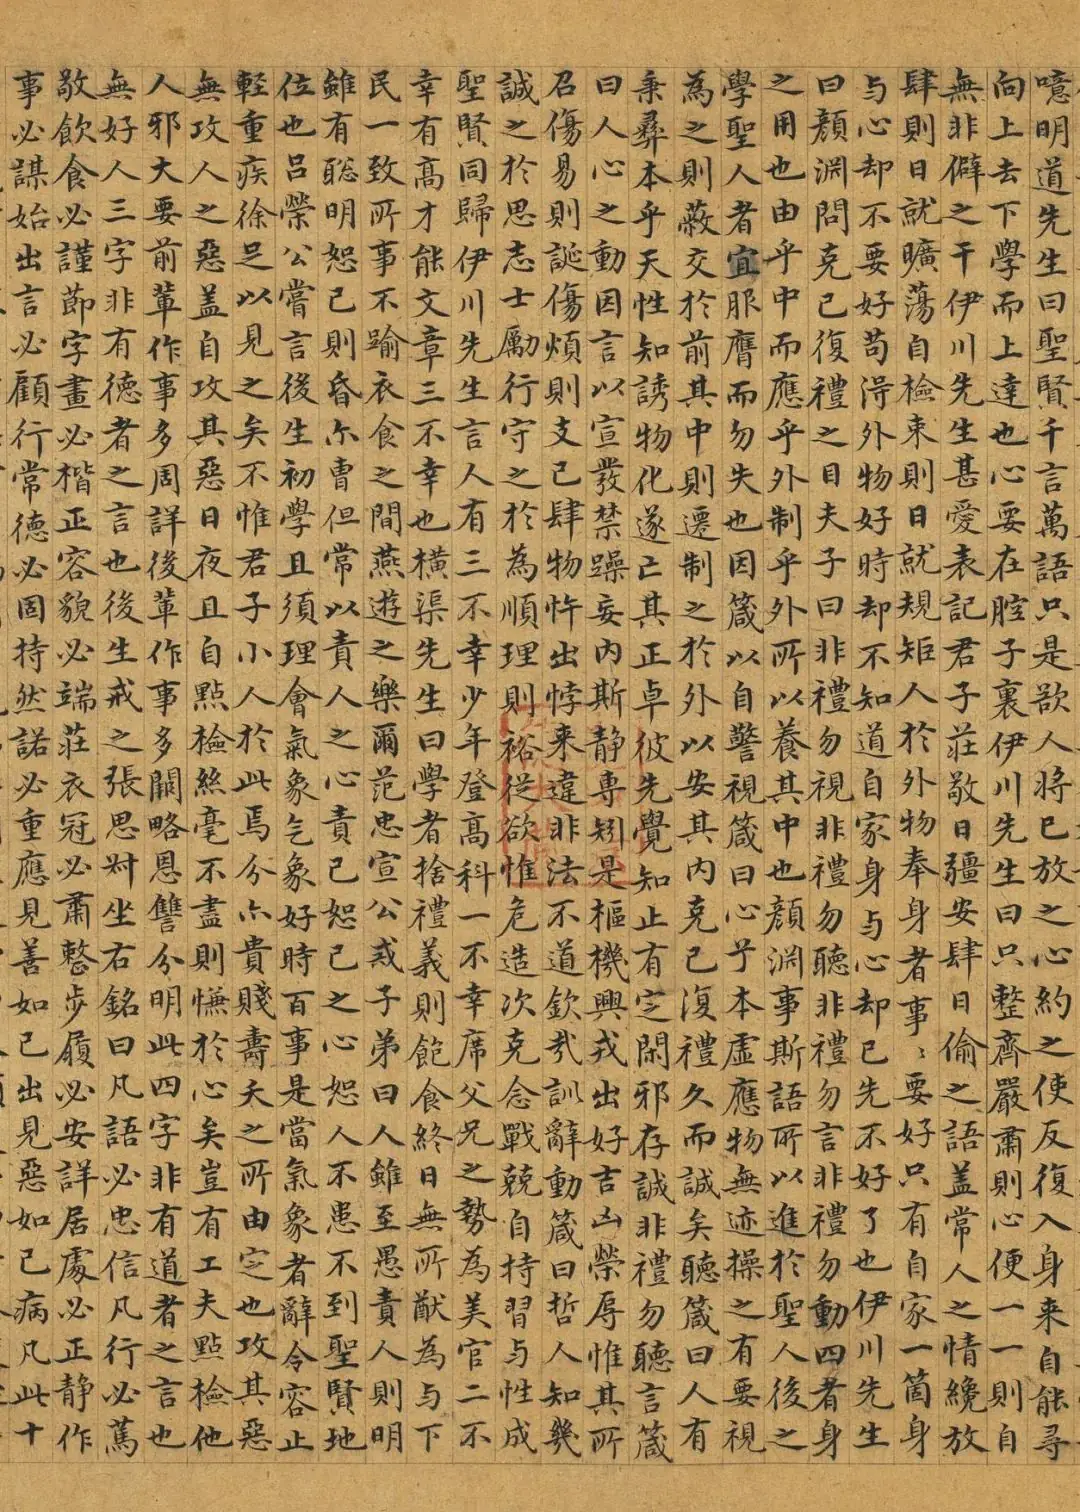 噫明道先生曰聖賢千言萬語只是欲人將已放之心約之使反復入身来自能尋
向上去下學而上達也心要在腔子裏伊川先生曰只整齊嚴肅則心便一一則自
無非僻之干伊川先生甚愛表記君子莊敬日疆安肆日偷之語盖常人之情纔放
肆則日就曠蕩自檢束則日就規矩人於外物奉身者事〻要好只有自家一箇身
与心却不要好苟得外物好時却不知道自家身与心却已先不好了也伊川先生
曰顏淵問克己復禮之目夫子曰非禮勿視非禮勿聽非禮勿言非禮勿動四者身
之用也由乎中而應乎外制乎外所以養其中也顏淵事斯語所以進於聖人後之
學聖人者宜服膺而勿失也因箴以自警視箴曰心乎本虛應物無迹操之有要視
為之則蔽交於前其中則遷制之於外以安其内克己復禮久而誠矣聽箴曰人有
秉彝本乎天性知誘物化遂亡其正卓彼先覺知止有定閑邪存誠非禮勿聽言箴
曰人心之動因言以宣發禁躁妄内斯静專矧是樞機興戎出好吉凶榮辱惟其所
召傷易則誕傷煩則支己肆物忤出悖来違非法不道欽哉訓辭動箴曰哲人知幾
誠之於思志士勵行守之於為順理則裕從欲惟危造次克念戰兢自持習与性成
聖賢同歸伊川先生言人有三不幸少年登高科一不幸席父兄之勢為美官二不
幸有高才能文章三不幸也橫渠先生曰學者捨禮義則飽食終日無所猷為与下
民一致所事不踰衣食之間燕遊之樂爾范忠宣公戒子弟曰人雖至愚責人則明
雖有聡明恕己則昏尒曹但常以責人之心責己恕己之心恕人不患不到聖賢地
位也吕榮公嘗言後生初學且須理會氣象气象好時百事是當氣象者辭令容止
輕重疾徐足以見之矣不惟君子小人於此焉分亦貴賤壽夭之所由定也攻其惡
無攻人之惡盖自攻其惡日夜且自點檢絲毫不盡則慊於心矣豈有工夫點檢他
人邪大要前輩作事多周詳後輩作事多闕略恩讐分明此四字非有道者之言也
無好人三字非有德者之言也後生戒之張思叔坐右銘曰凡語必忠信凡行必篤
敬飲食必謹節字畫必楷正容貌必端莊衣冠必肅整步履必安詳居處必正静作
事必謀始出言必顧行常德必固持然諾必重應見善如己出見惡如己病凡此十